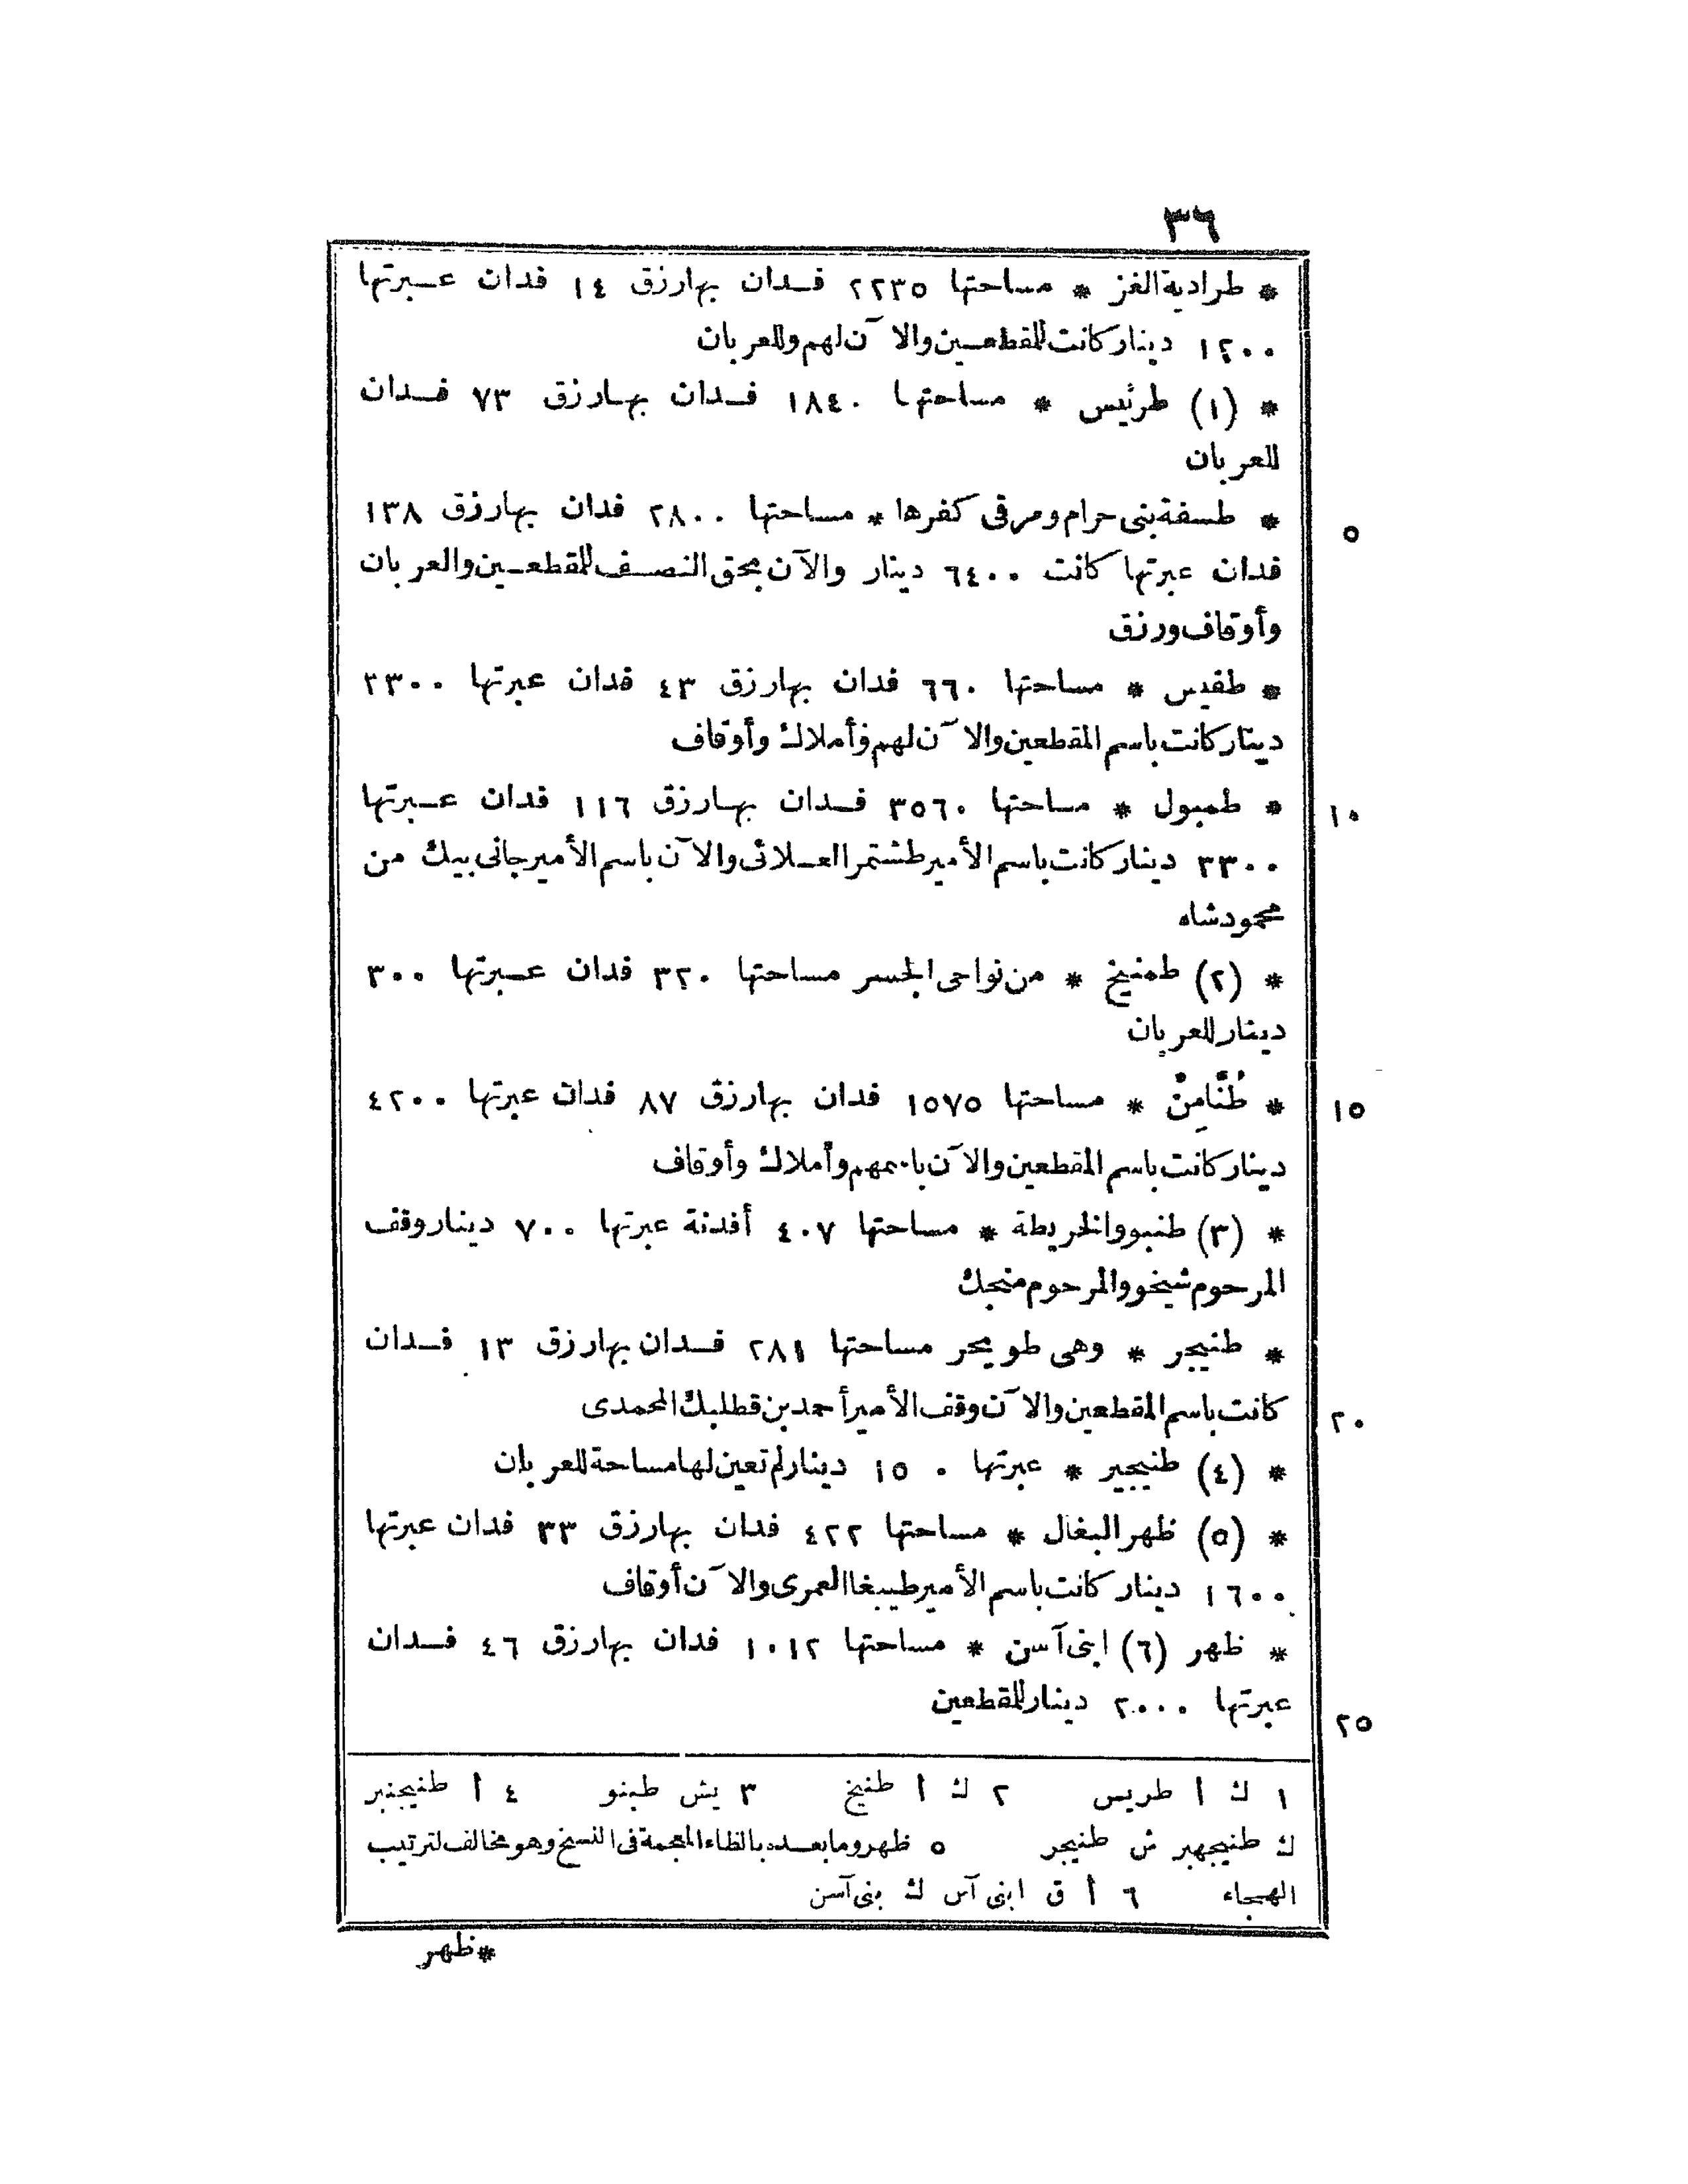 ٣٦
* طرادية الغز * مساحتها ٢٢٣٥ فدان بها رزق ١٤ فدان عبرتها
١٢٠٠ دينار كانت للمقطعين والآن لهم وللعربان
* (١) طرئيس * مساحتها ١٨٤٠ فدان بها رزق ٧٣ فدان
للعربان
* طسفة بنى حرام ومرقى كفرها * مساحتها ٢٨٠٠ فدان بها رزق ١٣٨
٥
فدان عبرتها كانت ٦٤٠٠ دينار والآن بحق النصف للمقطعين والعربان
وأوقاف ورزق
* طفيس * مساحتها ٦٦٠ فدان بها رزق ٤٣ فدان عبرتها ٣٣٠٠
دينار كانت باسم المقطعين والآن لهم وأملاك وأوقاف
* طمبول * مساحتها ٣٥٦٠ فدان بها رزق ١١٦ فدان عبرتها
١٠
٣٣٠٠ دينار كانت باسم الأمير طشتمر العلائى والآن باسم الأمير جانى بيك من
محمود شاه
* (٢) طمنيخ * من نواحى الجسر مساحتها ٣٢٠ فدان عبرتها ٣٠٠
دينار للعربان
* طُنَّامِنْ * مساحتها ١٥٧٥ فدان بها رزق ٨٧ فدان عبرتها ٤٢٠٠
١٥
دينار كانت باسم المقطعين والآن باسمهم وأملاك وأوقاف
* (٣) طنبو والخريطة * مساحتها ٤٠٧ أفدنة عبرتها ٧٠٠ دينار وقف
المرحوم شيخو والمرحوم منجك
* طنيجر * وهى طويحر مساحتها ٢٨١ فدان بها رزق ١٣ فدان
كانت باسم المقطعين والآن وقف الأمير أحمد بن قطلبك المحمدى
٢٠
* (٤) طنيجير * عبرتها ١٥٠ دينار لم تعين لها مساحة للعربان
* (٥) ظهر البغال * مساحتها ٤٢٢ فدان بها رزق ٣٣ فدان عبرتها
١٦٠٠ دينار كانت باسم الأمير طيبغا العمرى والآن أوقاف
* ظهر (٦) ابنى آسن * مساحتها ١٠١٢ فدان بها رزق ٤٦ فدان
عبرتها ٢٠٠٠ دينار للمقطعين
٢٥
١ ك أ طريس ٢ ك أ طنيخ ٣ يش طبنو ٤ أ طنيجنبر
ك طنيجهبر ش طنيجر ٥ ظهر وما بعده بالظاء المعجمة فى النسخ وهو مخالف لترتيب
الهجاء ٦ أ ق ابنى آس ك بنى آسن
* ظهر